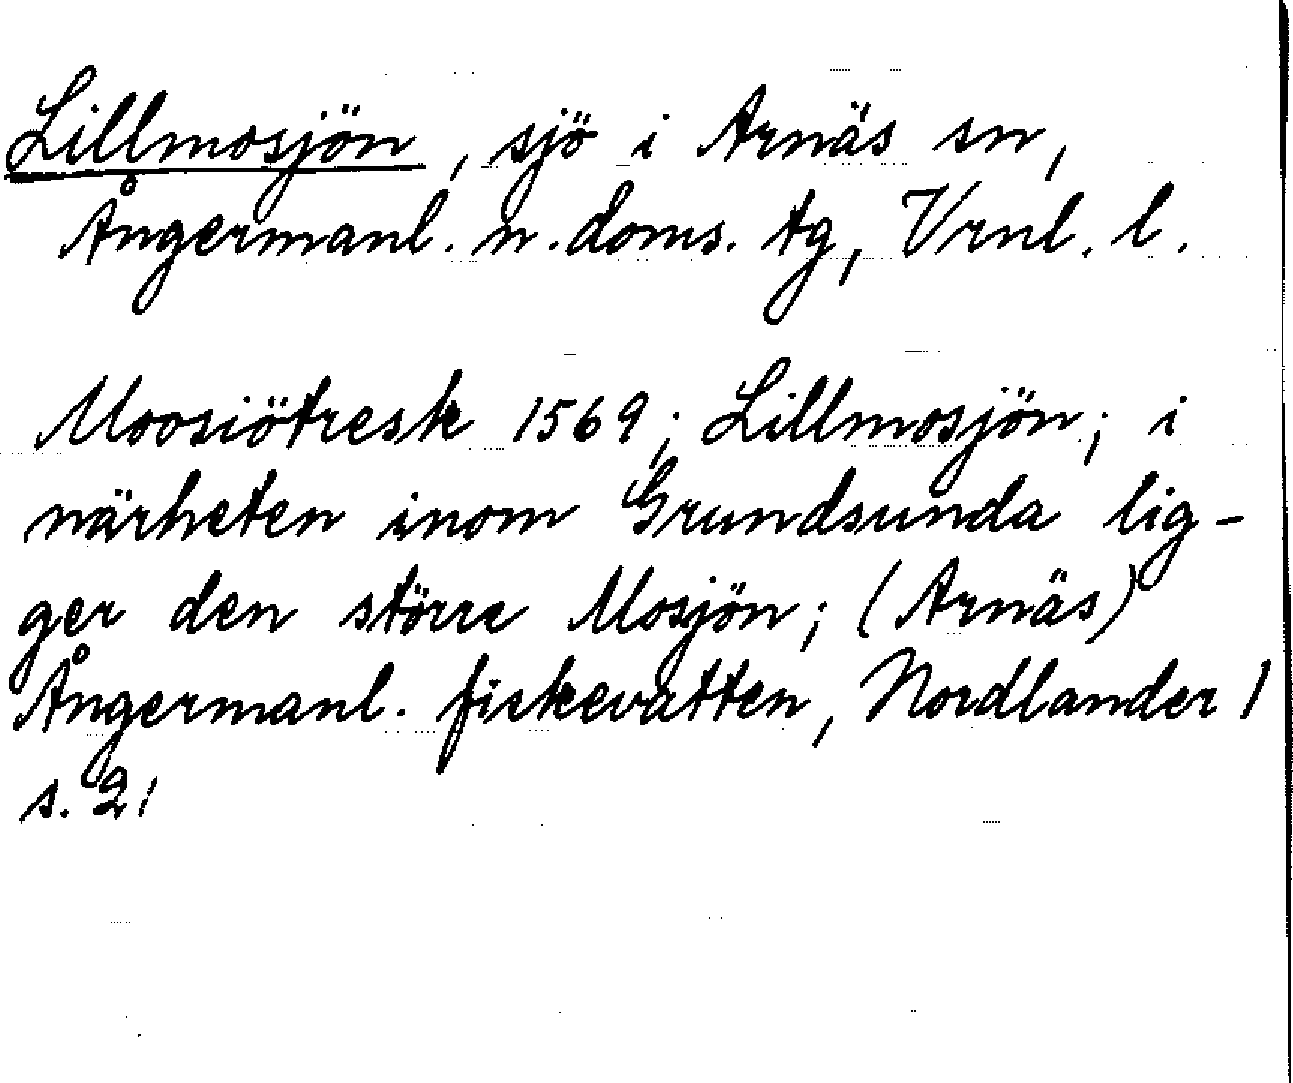 Lillmosjön, sjö i Arnäs sn,
Ångermanl. n. doms. tg, Vrnl. l.
Moosiötresk 1569; Lillmosjön; i
närheten inom Grundsunda lig-
ger den större Mosjön; (Arnäs)
Ångermanl. fiskevatten, Nordlander 1
s. 21